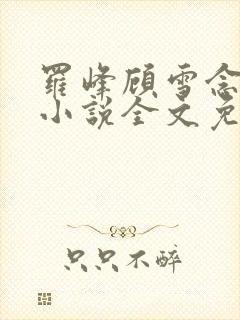 羅峰顧雪念
小說全文免
只只不醉